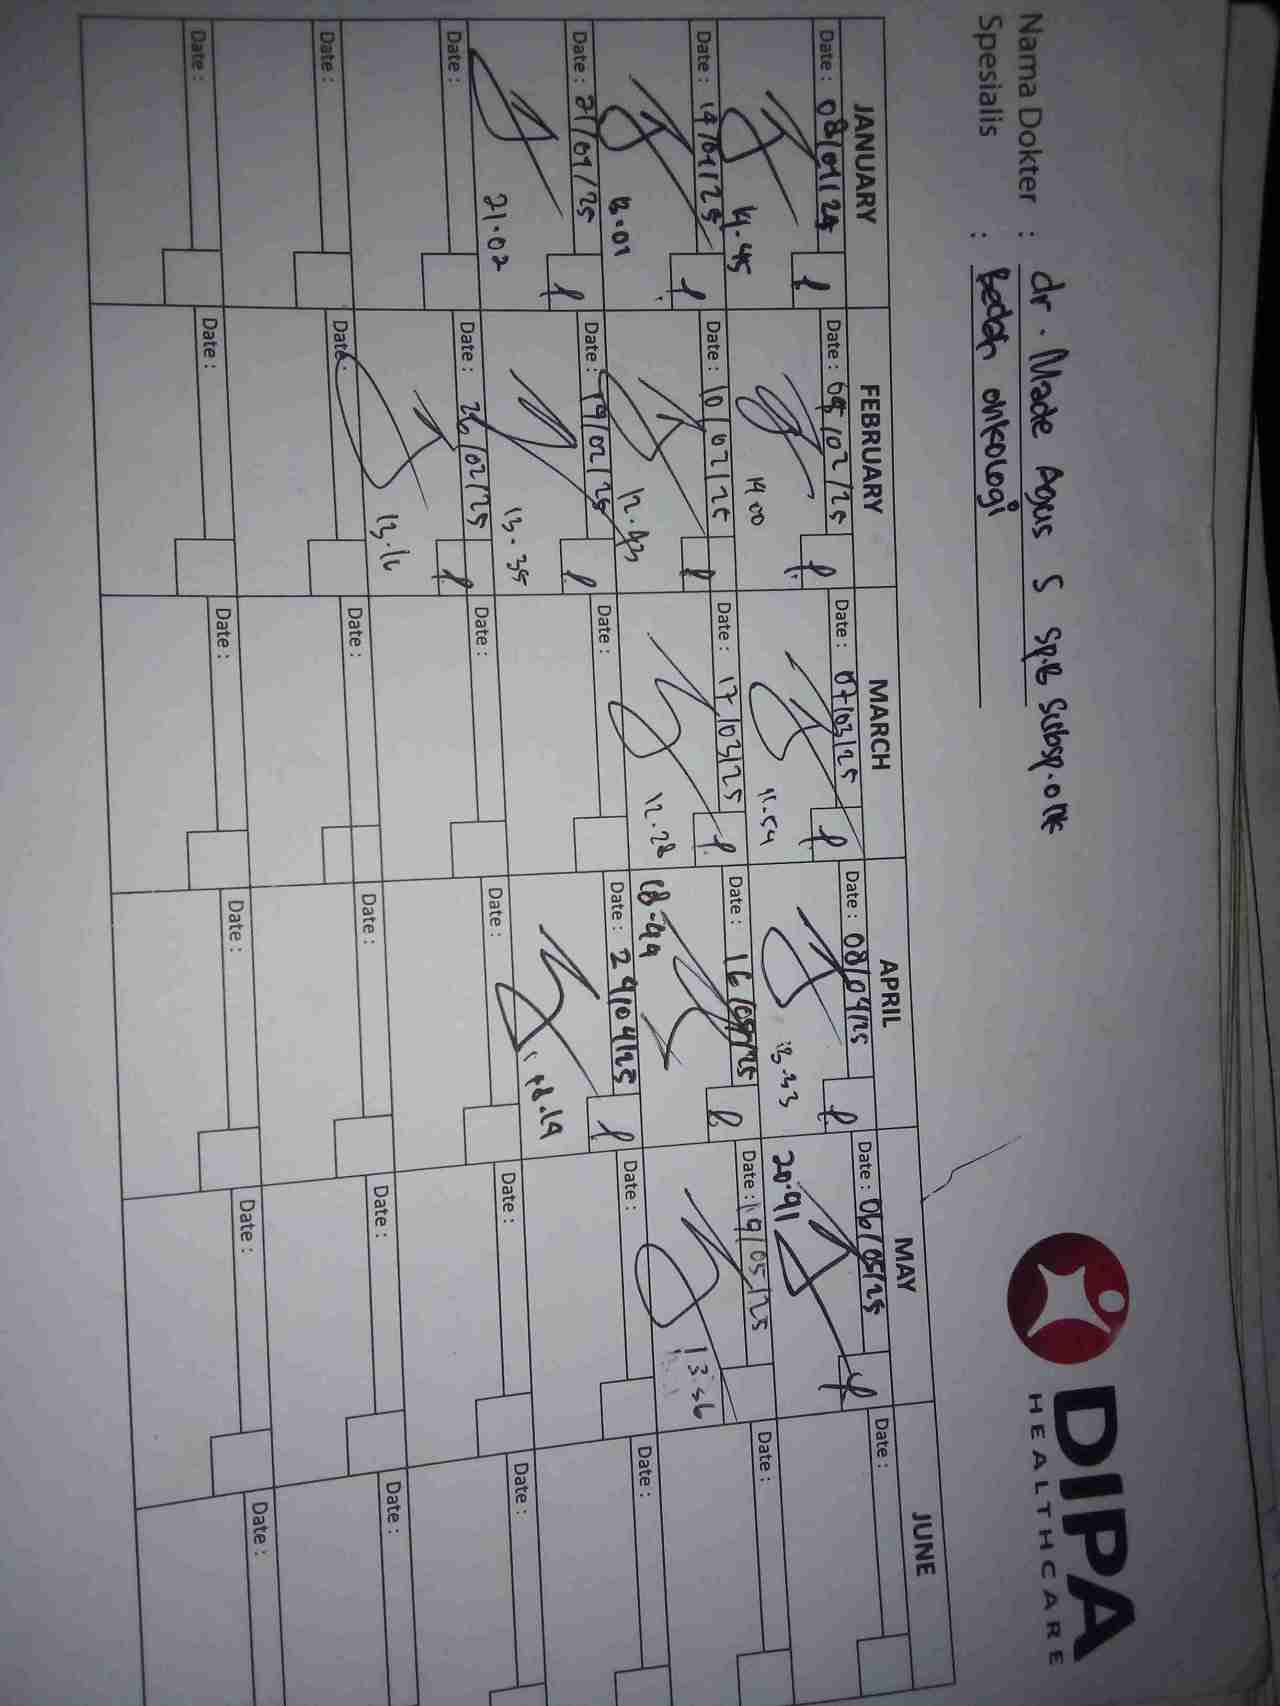 Nama Dokter : dr. Made Agus S Sp.B Subsp.onk
Spesialis : Bedah onkologi
DIPA
HEALTHCARE
JANUARY FEBRUARY MARCH APRIL MAY JUNE
Date : 08/01/25 Date : 05/02/25 Date : 07/03/25 Date : 08/04/25 Date : 06/05/25 Date :
14.45 14 00 11.54 13.33 20.41
Date : 14/01/25 Date : 10/02/25 Date : 17/03/25 Date : 16/04/25 Date : 19/05/25 Date :
12.43 12.28 18.44 13.56
Date : 21/01/25 Date : 19/02/25 Date : Date : 24/04/25 Date : Date :
21.02 13.35 18.19
Date : Date : 26/02/25 Date : Date : Date : Date :
13.16
Date : Date : Date : Date : Date : Date :
Date : Date : Date : Date : Date : Date :